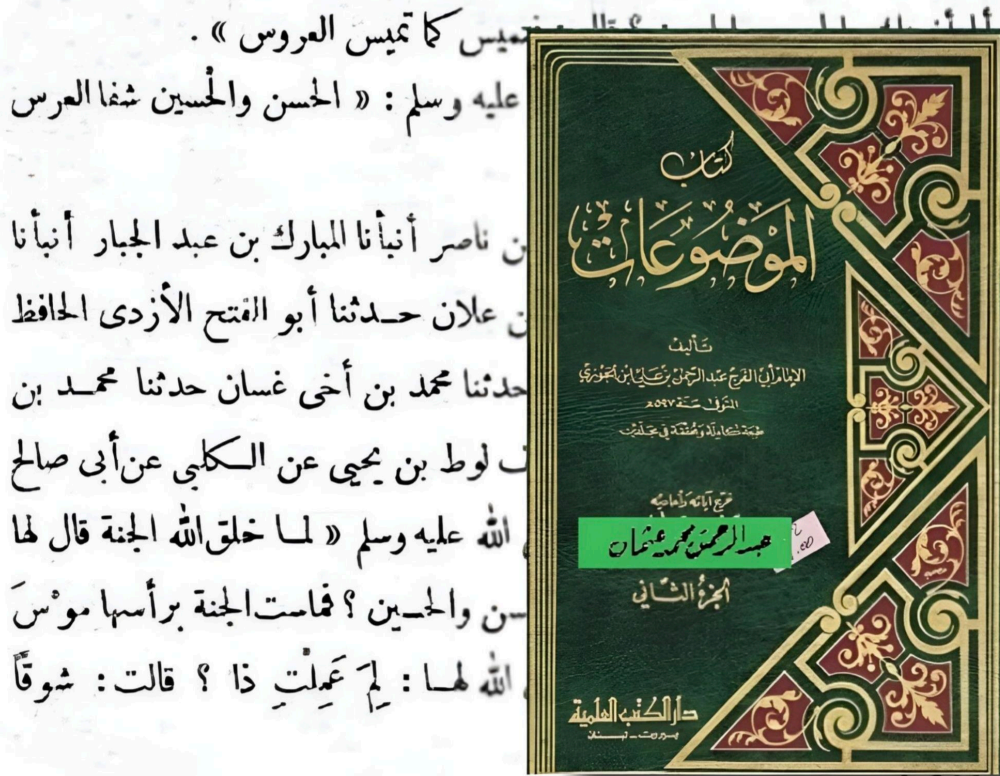 تميس كما تميس العروس » .
عليه وسلم : « الحسن والحسين شنفا العرش
بن ناصر أنبأنا المبارك بن عبد الجبار أنبأنا
بن علان حدثنا أبو الفتح الأزدى الحافظ
حدثنا محمد بن أخى غسان حدثنا محمد بن
لوط بن يحيى عن الكلبى عن أبى صالح
الله عليه وسلم « لما خلق الله الجنة قال لها
والحسين ؟ فماست الجنة برأسها
الله لها : لِمَ عَمِلْتِ ذا ؟ قالت : شوقًا
كتاب
الموضوعات
تأليف
الإمام أبي الفرج عبد الرحمن بن علي ابن الجوزي
المتوفى سنة ٥٩٧ هـ
طبعة كاملة ومحققة في مجلدين
خرج آياته وأحاديثه
عبد الرحمن محمد عثمان
الجزء الثاني
دار الكتب العلمية
بيروت - لبنان